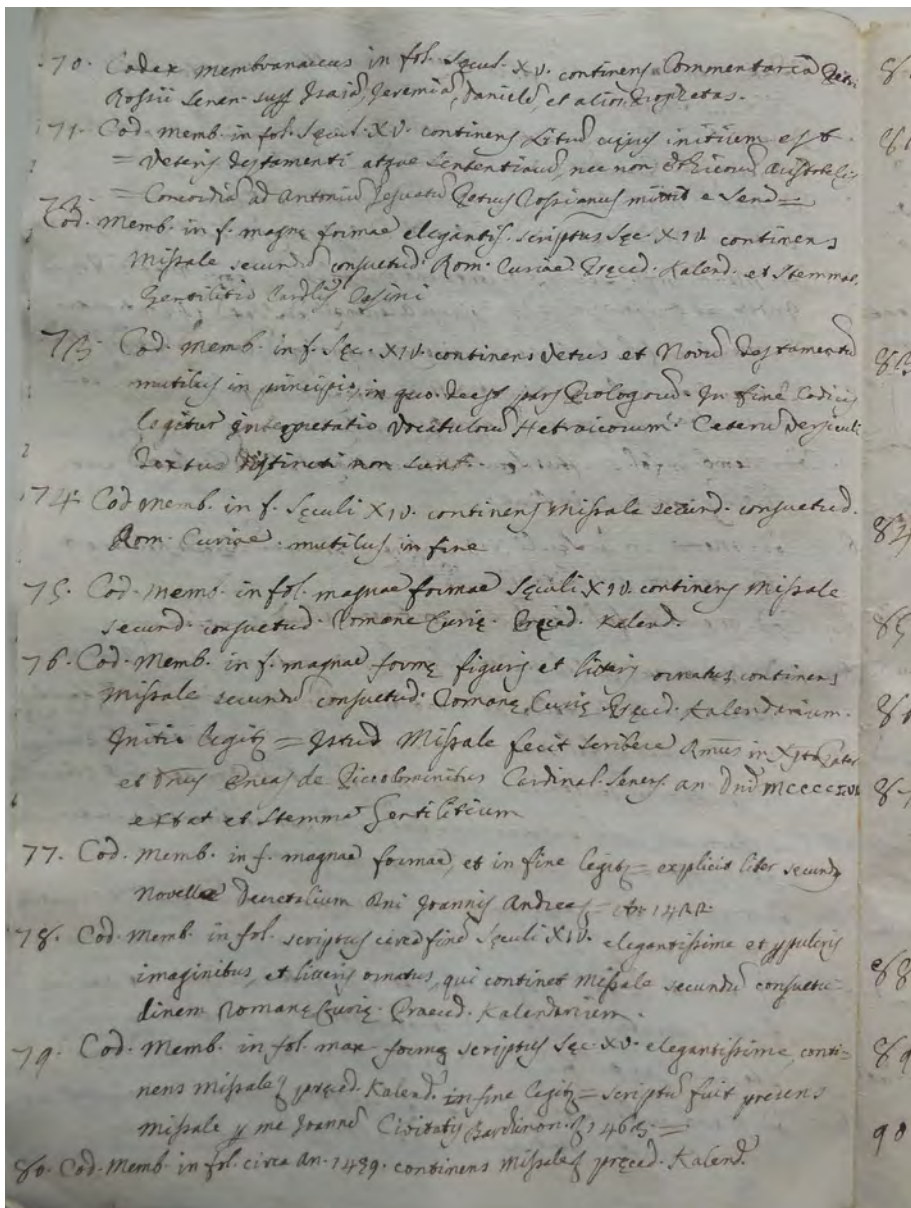 70. Codex membranaceus in fol. Sęcul. XV. continens Commentaria Petri
Rossii Senen. supr Isaiã, Jeremiã, Danielẽ, et alios Prophetas.
71. Cod. memb. in fol. Sęcul. XV. continens cujus initium est
= Veteris Testamenti atque Sententiarũ, nec non Ethicorũ Aristotelis
= Concordiã ad Antoniũ Jesuatũ Petrus Rossianus mittit e Senis =
72. Cod. memb. in f. magnę formae elegantis. scriptus Sęc. XIV. continens
Missale secundũ consuetud. Rom. Curiae. Pręced. Kalend. et Stemmate
Gentilitio Cardlis
73. Cod. memb. in f. Sęc. XIV. continens Vetus et Novũ Testamentũ
mutilus in principio, in quo deest pars Prologorũ. In fine Codicis
legitur Interpretatio Vocabulorũ Hebraicorum. Ceterũ Versiculi
Textus distincti non sunt.
74. Cod memb. in f. Sęculi XIV. continens Missale secund. consuetud.
Rom. Curiae. mutilus in fine
75. Cod. memb. in fol. magnae formae Sęculi XIV. continens Missale
secund. consuetud. Romane Curię. Pręced. Kalend.
76. Cod. Memb. in f. magnae formę figuris et litteris ornatus, continens
Missale secundũ consuetud. Romanę Curię. Pręced. Kalendarium.
Initio legitʒ = Istud Missale fecit scribere Rmus in Xpto Pater
et Dnus Eneas de Piccolominibus Cardinal. Senens. an. Dni
extat et Stemma Gentilitium
77. Cod. Memb. in f. magnae formae, et in fine legitʒ = explicit liber secundʒ
Novellae Decretalium Dni Joannis Andreę =
78. Cod. Memb. in fol. scriptus circa finẽ Sęculi XIV. elegantissime et pulcris
imaginibus, et litteris ornatus, qui continet Missale secundũ consuetu-
dinem Romanę Curię. Praeced. Kalendarium.
79. Cod. Memb. in fol. max. formę scriptus Sęc. XV. elegantissime, conti-
nens missale, pręced. Kalend. in fine legitʒ = scriptũ fuit presens
missale p me Joannẽ Civitatis 1463. =
80. Cod. Memb. in fol. circa an. 1489. continens Missale, pręced. Kalend.
84
85
89
90